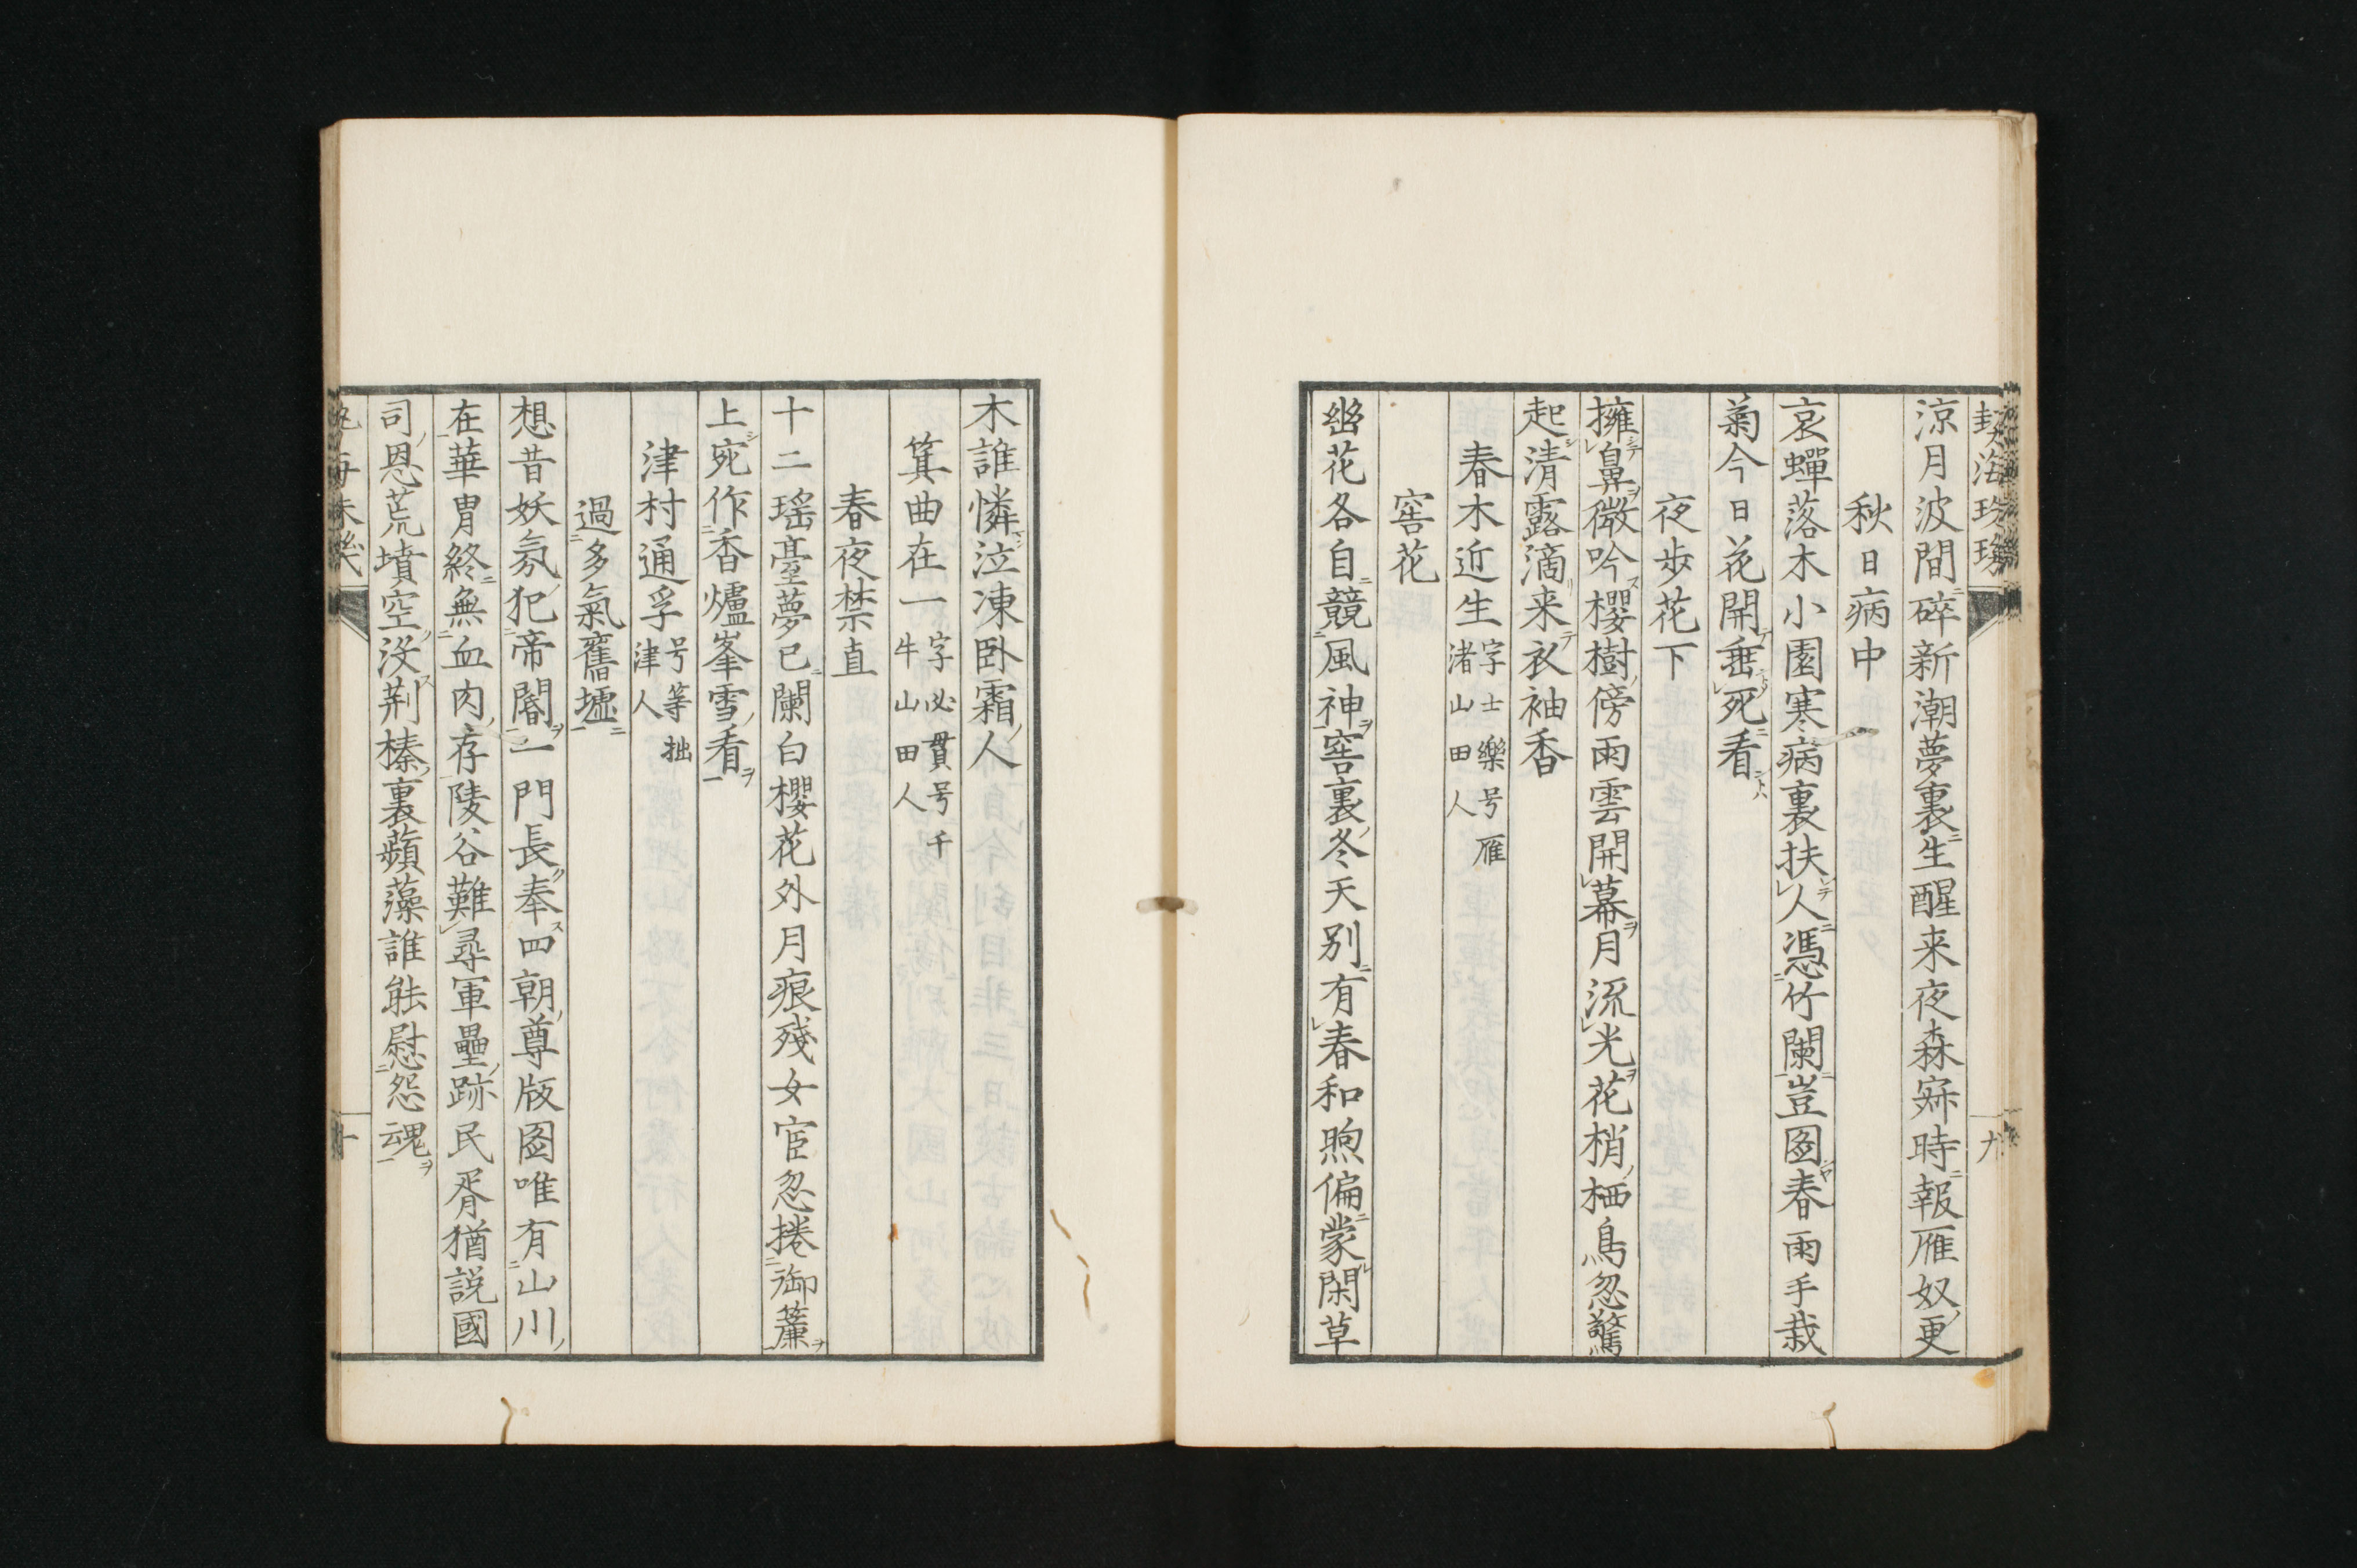 涼月波間碎新潮夢裏生醒来夜森寂時報雁奴更
秋日病中
哀蟬落木小園寒病裏扶人凭竹闌豈圖春雨手栽
菊今日花開垂死看
夜歩花下
擁鼻微吟櫻樹傍雨雲開幕月流光花梢栖鳥忽驚
起清露滴来衣袖香
春木近生 字士樂号雁
渚山田人
窖花
幽花各自競風神窖裏冬天別有春和煦偏蒙閑草
九
木誰憐泣凍臥霜人
箕曲在一 字必貫号千
牛山田人
春夜禁直
十二瑤臺夢已闌白櫻花外月痕殘女宦忽捲御簾
上宛作香爐峯雪看
津村通孚 号等拙
津人
過多氣舊墟
想昔妖氛犯帝閽一門長奉四朝尊版圖唯有山川
在華胄終無血肉存陵谷難尋軍壘跡民胥猶説國
司恩荒墳空没荆榛裏蘋藻誰能慰怨魂
十